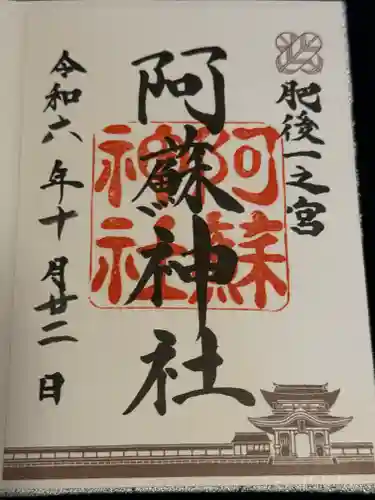 肥後一之宮
阿蘇神社
阿蘇
神社
令和六年十月廿二日